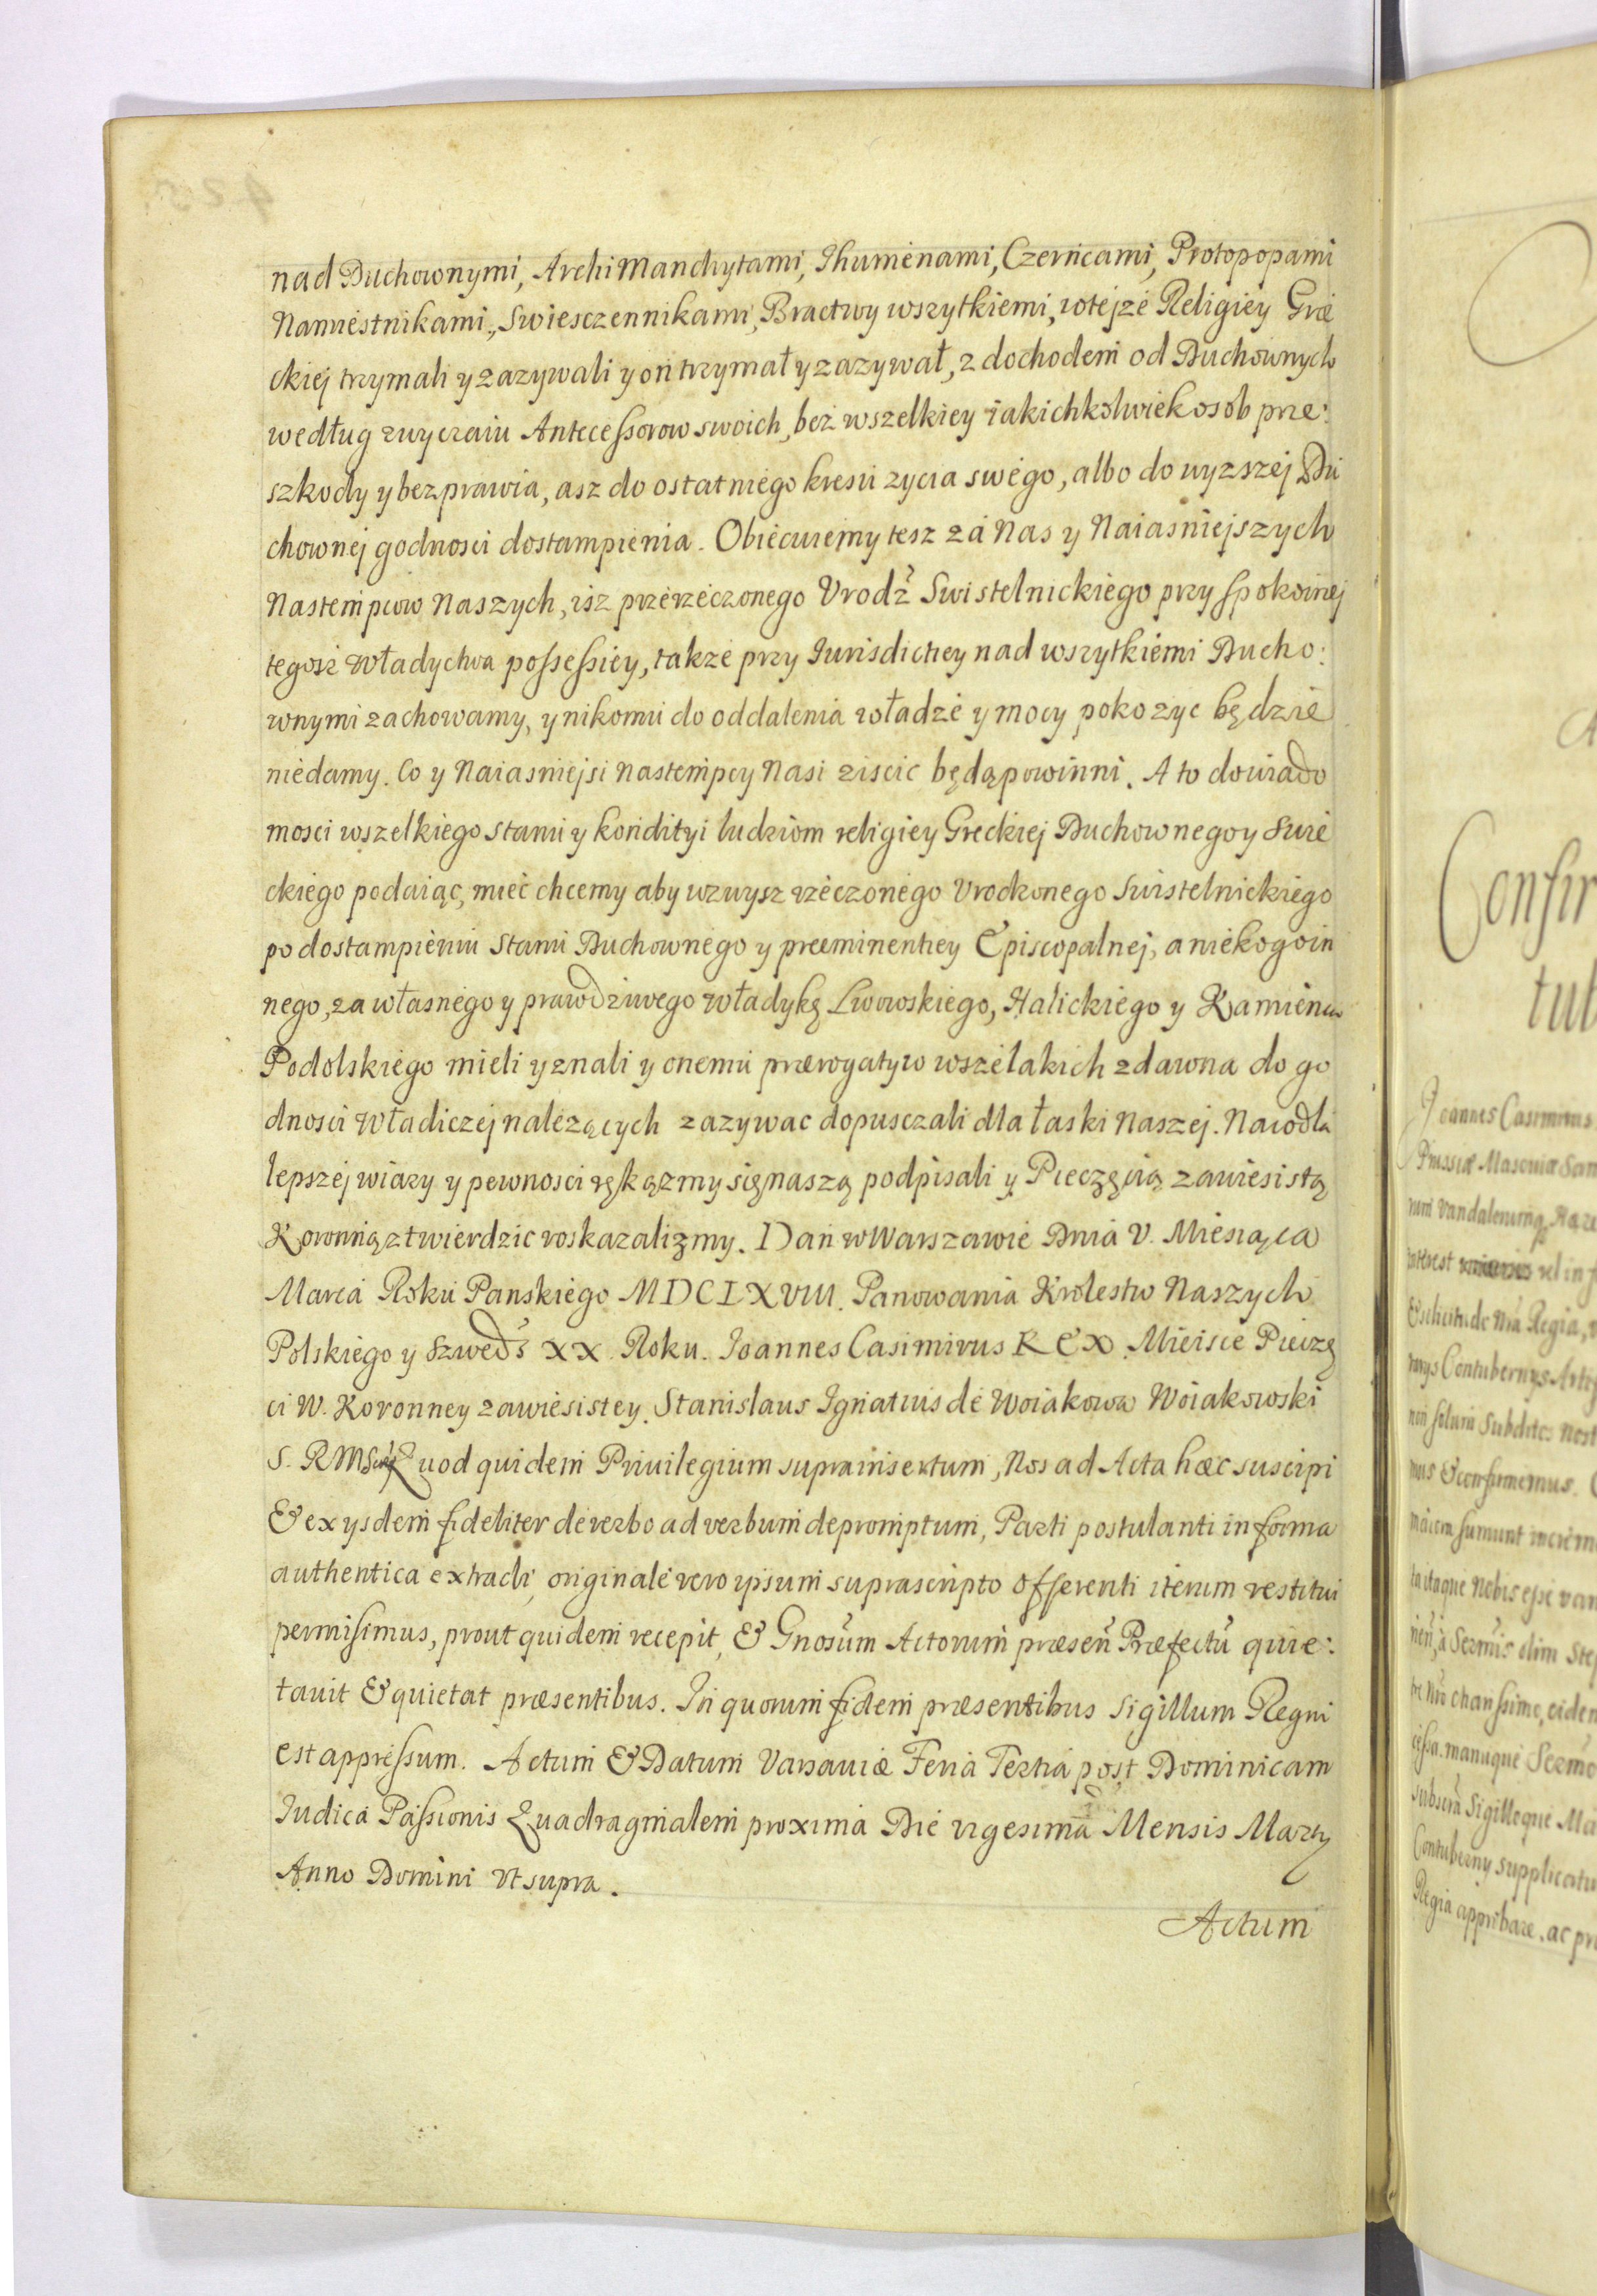 nad Duchownymi, ArchiManchytami, Ihumenami, Czerncami, Protopopami
Namiestnikami, Swiesczennikami, Bractwy wszytkiemi, wtejze Religiey Græ
ckiej trzymali y zazywali y on trzymał y zazywał, z dochodem od Duchownych
według zwyczaiu Antecessorow swoich, bez wszelkiey iakichkolwiek osob prze:
szkody y bezprawia, asz do ostatniego kresu zycia swego, albo do wyzszej Du
chownej godnosci dostampienia. Obiecuiemy tesz za Nas y Naiasniejszych
Nastempcow Naszych, isz przerzeczonego Vrodz Swistelnickiego przy spokoinej
tegosz Władyctwa possessiey, takze przy Iurisdictiey nad wszytkiemi Ducho:
wnymi zachowamy, y nikomu do oddalenia władze y mocy poko zyc będzie
niedamy. Co y Naiasniejsi Nastempcy Nasi ziscic będą powinni. A to dowiado
mosci wszelkiego stanu y kondityi ludziom religiey Greckiej Duchownego y Swie
ckiego podaiąc, miec chcemy aby wzwysz rzeczonego Vrodzonego Swistelnickiego
po dostampieniu stanu Duchownego y preeminentiey Episcopalnej, a niekogo in
nego, za własnego y prawdziwego Władykę Lwowskiego, Halickiego y Kamienca
Podolskiego mieli y znali y onemu prærogatyw wszelakich zdawna do go
dnosci Władiczej nalezących zazywac dopusczali dla łaski Naszej. Na co dla
lepszej wiary y pewnosci ręką zmy się naszą podpisali y Pieczęcią zawiesistą
Koronną ztwierdzic roskazalizmy. Dan w Warszawie Dnia V. Miesiąca
Marca Roku Panskiego MDCLXVIII. Panowania Krolestw Naszych
Polskiego y Szweds XX. Roku. Joannes Casimirus REX. Mieisce Pieczę
ci W. Koronney zawiesistey. Stanislaus Ignatius de Woiakowa Woiakowski
S. RM Quod quidem Priuilegium suprainsertum, Nos ad Acta hæc suscipi
& ex ysdem fideliter de verbo ad verbum depromptum, Parti postulanti in forma
authentica extradi, originale vero ipsum suprascripto offerenti iterum restitui
permisimus, prout quidem recepit, & Gnosum Actorum præsen Præfectū quie:
tauit & quietat præsentibus. In quorum fidem præsentibus Sigillum Regni
est appressum. Actum & Datum Varsauiæ Feria Tertia post Dominicam
Iudica Passionis Quadragmalem proxima Die vigesima Mensis Marty
Anno Domini Vt supra.
Actum
Confir
tub
Joannes Casimirus